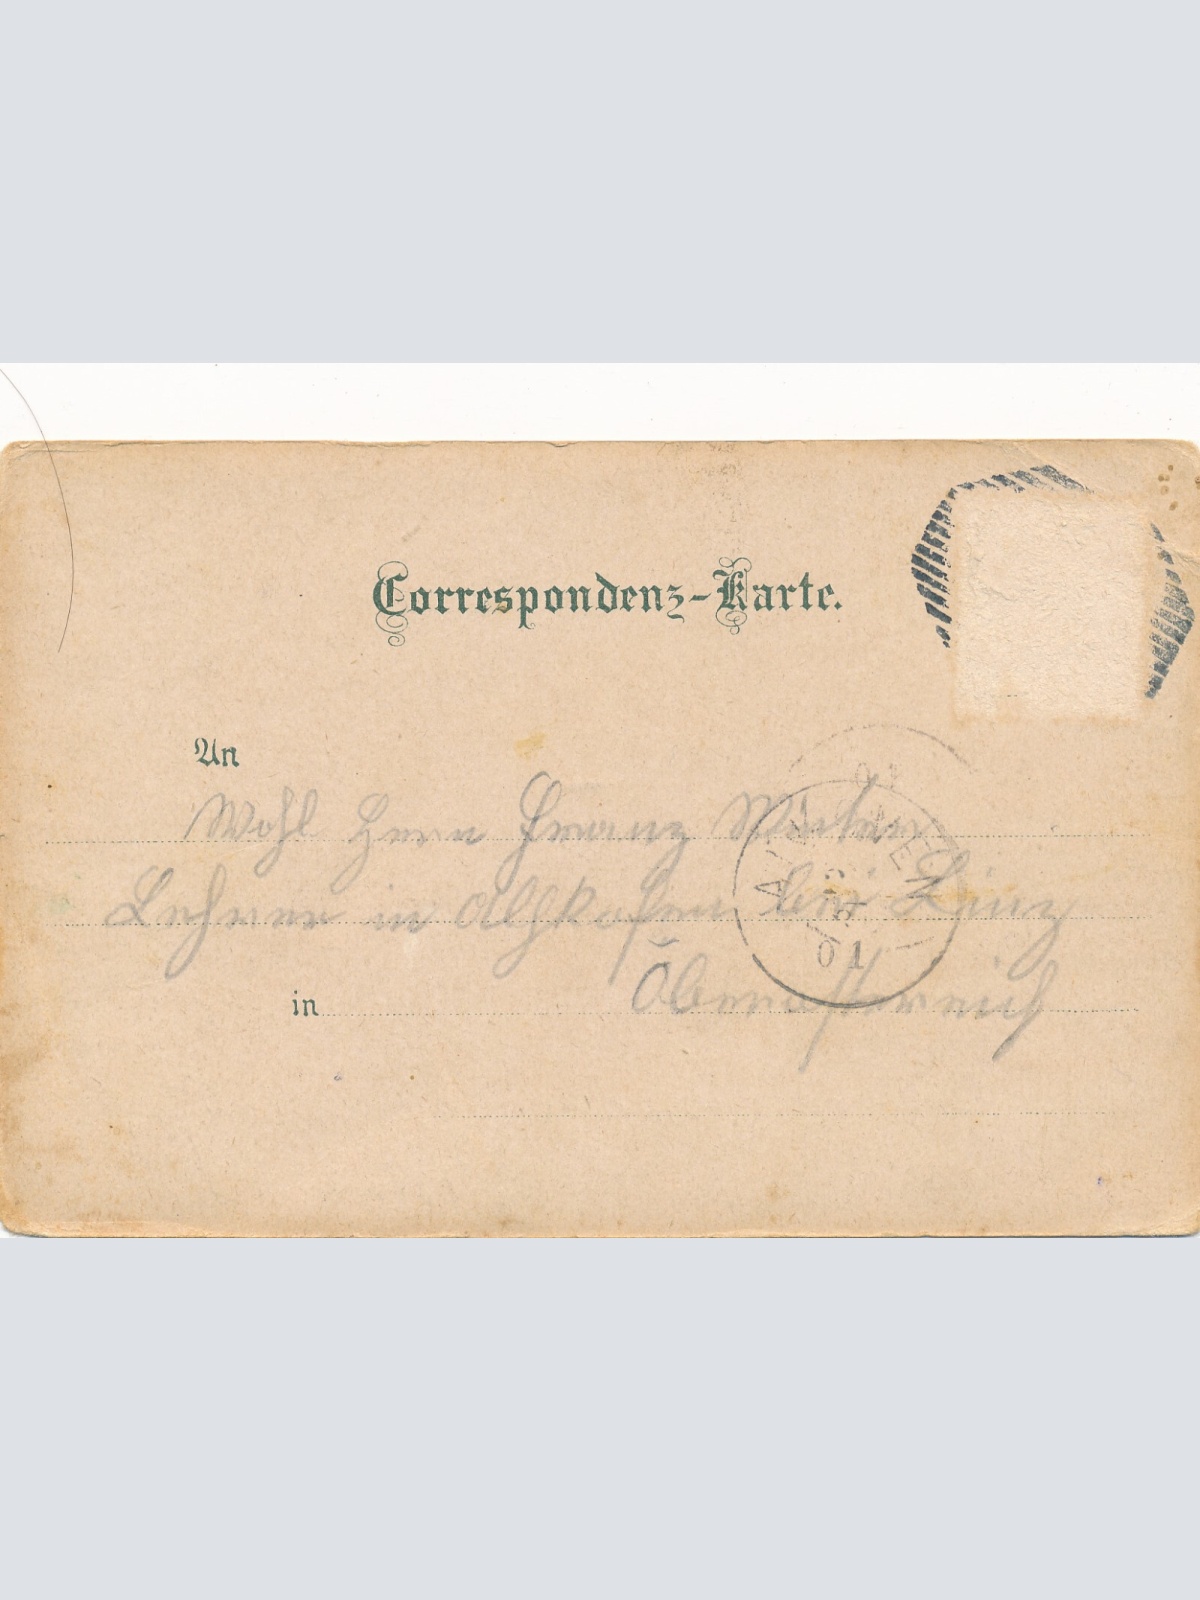 Correspondenz-Karte.
An
Wohl Herrn Franz
Lehrer in bei Linz
in Oberösterreich
01